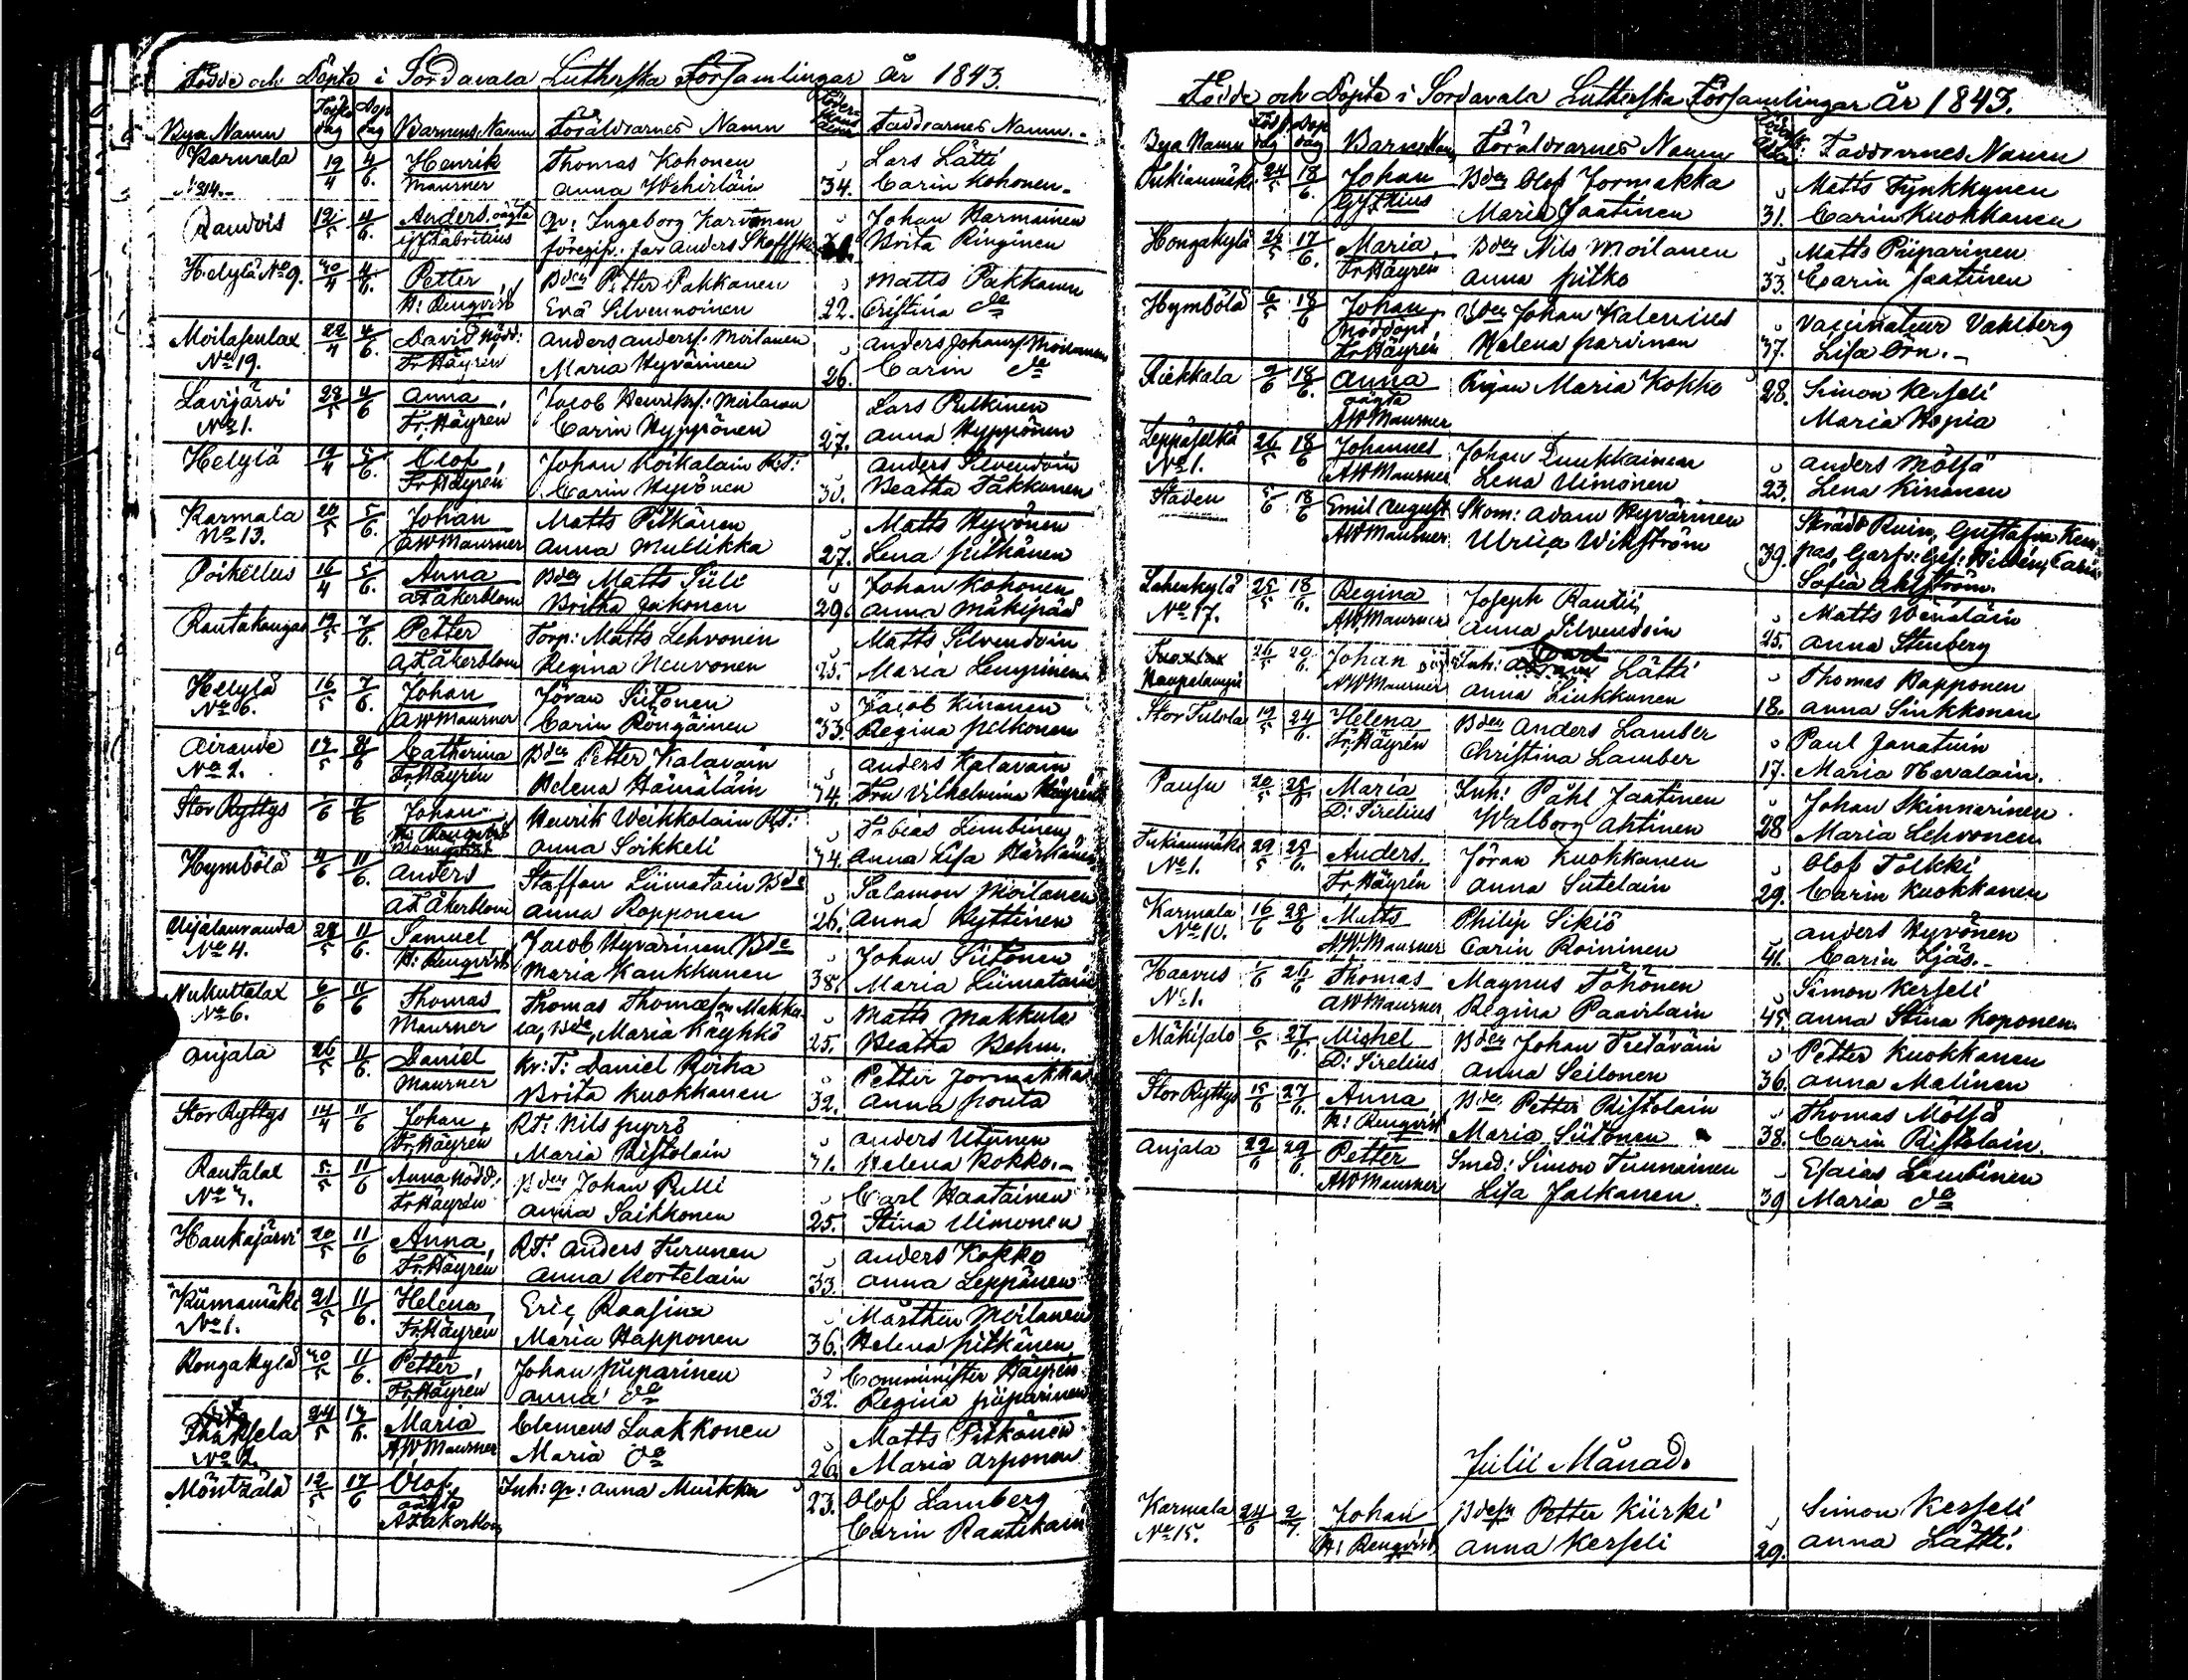 Födde och Döpte i Sordavala Lutherska Församlingar år 1843.
Bya Namn Födsl dag Dop dag Barnens Namn Föräldrarnes Namn Faddrarnes Namn
Karmala 19/4 4/6. Henrik Thomas Kohonen Lars Lätti
Maurner Anna 34. Carin Kohonen
Raudvis 12/5 4/6. Anders oägta Qv: Ingeborg Karvonen Johan Harmainen
Fabritius föregif. far Anders Brita Ringinen
Helylä No 9. 30/4 4/6. Petter Bden Petter Pakkanen Matts Pakkanen
H: Renqvist Eva Silvennoinen 22. Cristina do
22/4 4/6. David nödd: Anders Andersf. Moilanen Anders Johansf. Moilanen
No 19. Fr. Häyrén Maria Hyvärinen 26. Carin do
Lavijärvi 28/5 4/6 Anna Jacob Henriksf: Moilanen Lars Pulkinen
No 1. Fr. Häyrén Carin Hyppönen 27. Anna Hyppönen
Helylä 19/4 5/6. Olof Johan Koikalain R.T. Anders Silvendoin
Fr. Häyrén Carin Hyvönen 30. Beatha Pakkanen
Karmala 20/5 5/6. Johan Matts Pitkänen Matts Hyvönen
No 13. AW Maurner Anna Mullikka 27. Lena Pitkänen
Poikellus 16/4 5/6. Anna Bden Matts Süli Johan Kohonen
A F Åkerblom Britha Jakonen 29. Anna Mäkipää
Rautakangas 19/5 7/6. Petter Torp: Matts Lehvonen Matts Silvendoin
A F Åkerblom Regina Neuvonen 25. Maria Lempinen
Helylä 16/5 7/6. Johan Jöran Siitonen Jacob Kinanen
No 6. AW Maurner Carin Rongäinen 33. Regina Pelkonen
Airande 17/5 Catherina Bden Petter Kalavain Anders Kalavain
No 2. Fr. Häyrén Helena Hämäläin 34. Fru Vilhelmina Häyrén
Stor Ryttys Johan Henrik Weikkolain R.T. Tobias Lembinen
Anna Soikkeli 34. Anna Lisa Härkönen
Hymbölä 4/6 11/6. Anders Staffan Liimatain Bde Salamon Moilanen
A F Åkerblom Anna Ropponen 26. Anna Hyttinen
28/5 11/6. Samuel Jacob Hyvärinen Bde Johan Siitonen
No 4. H: Renqvist Maria Kaukkanen 38. Maria Liimatain
Nukuttalax 6/6 11/6 Thomas Thomas Thomasson Makku- Matts Makkula
No 6. Maurner la, Bde, Maria Käyhkö 25. Beatha Behm.
Anjala 26/5 11/6. Daniel Kr: T: Daniel Roiha Petter Jormakka
Maurner Brita Kuokkanen 32. Anna Pouta
Stor Ryttys 14/4 11/6 Johan R.T. Nils Pyrrö Anders Utunen
Fr. Häyrén Maria Ristolain 31. Helena Kokko.
Rautalax 5/5 11/6 Anna nödd: Bden Johan Pelli Carl Haatainen
Fr. Häyrén Anna Saikkonen 25. Stina Uimonen
Haukajärvi 20/5 11/6 Anna R.T. Anders Turunen Anders Kokko
Fr. Häyrén Anna Kortelain 33. Anna Leppänen
Kiimamäki 21/5 11/6. Helena Eric Raasina Mårthen Moilanen
No 1. Fr. Häyrén Maria Happonen 36. Helena Pitkänen
30/5 11/6. Petter Johan Piiparinen Comminister Häyrén
Fr. Häyrén Anna do 32. Regina Piiparinen
24/5 Maria Clemens Luukkonen Matts Pitkänen
No 2. AW Maurner Maria do 26. Maria Arponen
Möntzälä 12/5 17/6 Olof Inh: qv: Anna Muikku 23. Olof Lamberg
oägta Carin Rautikain
A F Åkerblom
Födde och Döpte i Sordavala Lutherska Församlingar År 1843.
Bya Namn Föd dag Dop dag Barnens Namn Föräldrarnes Namn Faddrarnes Namn
Tukianmäki 24/5 18/6. Johan Bden Olof Jormakka Matts Tynkkynen
Maria Jaatinen 31. Carin Kuokkanen
Hongakylä 24/5 17/6. Maria Bden Nils Moilanen Matts Piiparinen
Fr. Häyrén Anna Pitko 33. Carin Jaatinen
Hymbölä 6/5 18/6 Johan Bden Johan Kalenius Vaccinateur Vahlberg
nöddöpt, Helena Parvinen 37. Lisa Örn.
Fr. Häyrén
Riekkala 9/6 18/6. Anna Pigan Maria Kokko 28. Simon Kerseli
oägta Maria Hopia
AW Maurner
Leppäselkä 26/5 18/6 Johannes Johan Kukkainen Anders Mölsä
No 1. AW Maurner Lena Uimonen 23. Lena Kinanen
Staden 5/6 18/6 Emil August Skom: Adam Hyvärinen
AW Maurner Ulrica Wikström 39.
Sofia Ahlström.
Lahenkylä 25/5 18/6. Regina Joseph Rautii Matts Wenäläin
No 17. AW Maurner Anna Silvendoin 25. Anna Stenberg
26/5 20/6. Johan Inh: Carl Lätti Thomas Happonen
AW Maurner Anna Linkkonen 18. Anna Sinkkonen
Stor Tulola 19/5 24/6. Helena Bden Anders Lamber Paul Janatuin
Fr. Häyrén Christina Lamber 17. Maria Hevalain.
Pausu 20/5 25/6 Maria Inh: Påhl Jaatinen Johan Skinnarinen
D: Sirelius Walborg Ahtinen 28 Maria Lehvonen
Tukianmäki 29/5 25/6. Anders. Jöran Kuokkanen Olof Tolkki
No 1. Fr. Häyrén Anna Sutelain 29. Carin Kuokkanen
Karmala 16/6 25/6 Matts Philip Sikiö Anders Hyvönen
No 10. AW Maurner Carin Roininen 41. Carin Ijäs.
Haavus 1/6 26/6 Thomas Magnus Töhönen Simon Kerseli
No 1. AW Maurner Regina Paavilain 45. Anna Stina Koponen.
Mäkisalo 6/5 27/6. Michel Bden Johan Tietäväin Petter Kuokkanen
D: Sirelius Anna Seilonen 36. Anna Malinen
Stor Ryttys 15/6 27/6. Anna Bden Petter Ristolain Thomas Mölsä
H: Renqvist Maria Siitonen 38. Carin Ristolain.
Anjala 22/6 29/6. Petter Smed: Simon Tuunainen Esaias Lembinen
AW Maurner Lisa Jalkanen 39 Maria do
Julii Månad.
Karmala 24/6 2/7. Johan Bdesn Petter Kiirki Simon Kerseli
No 15. H: Renqvist Anna Kerseli 29. Anna Lätti.